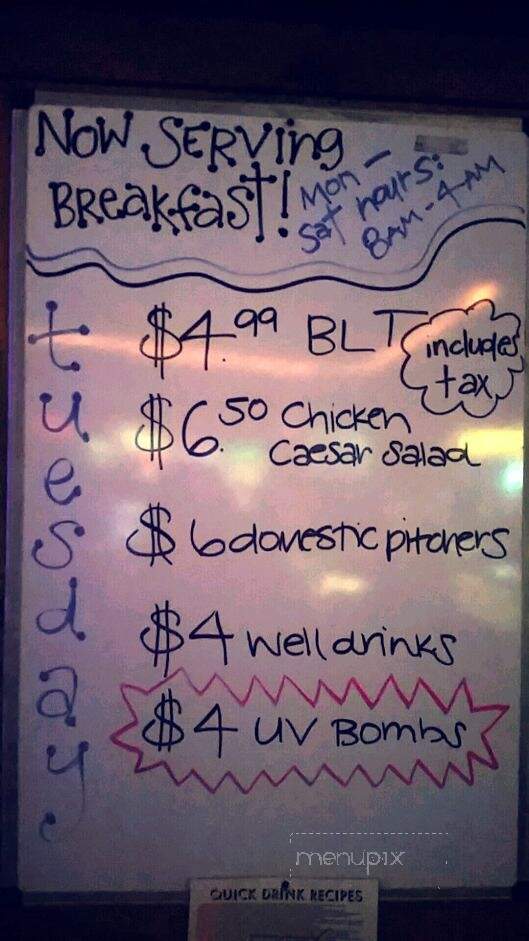 Now Serving
Breakfast!
Mon -
Sat hours:
8AM - 4AM
tuesday
$4.99 BLT
includes
tax
$6.50 Chicken
Caesar Salad
$6 domestic pitchers
$4 well drinks
$4 UV Bombs
menupix
QUICK DRINK RECIPES